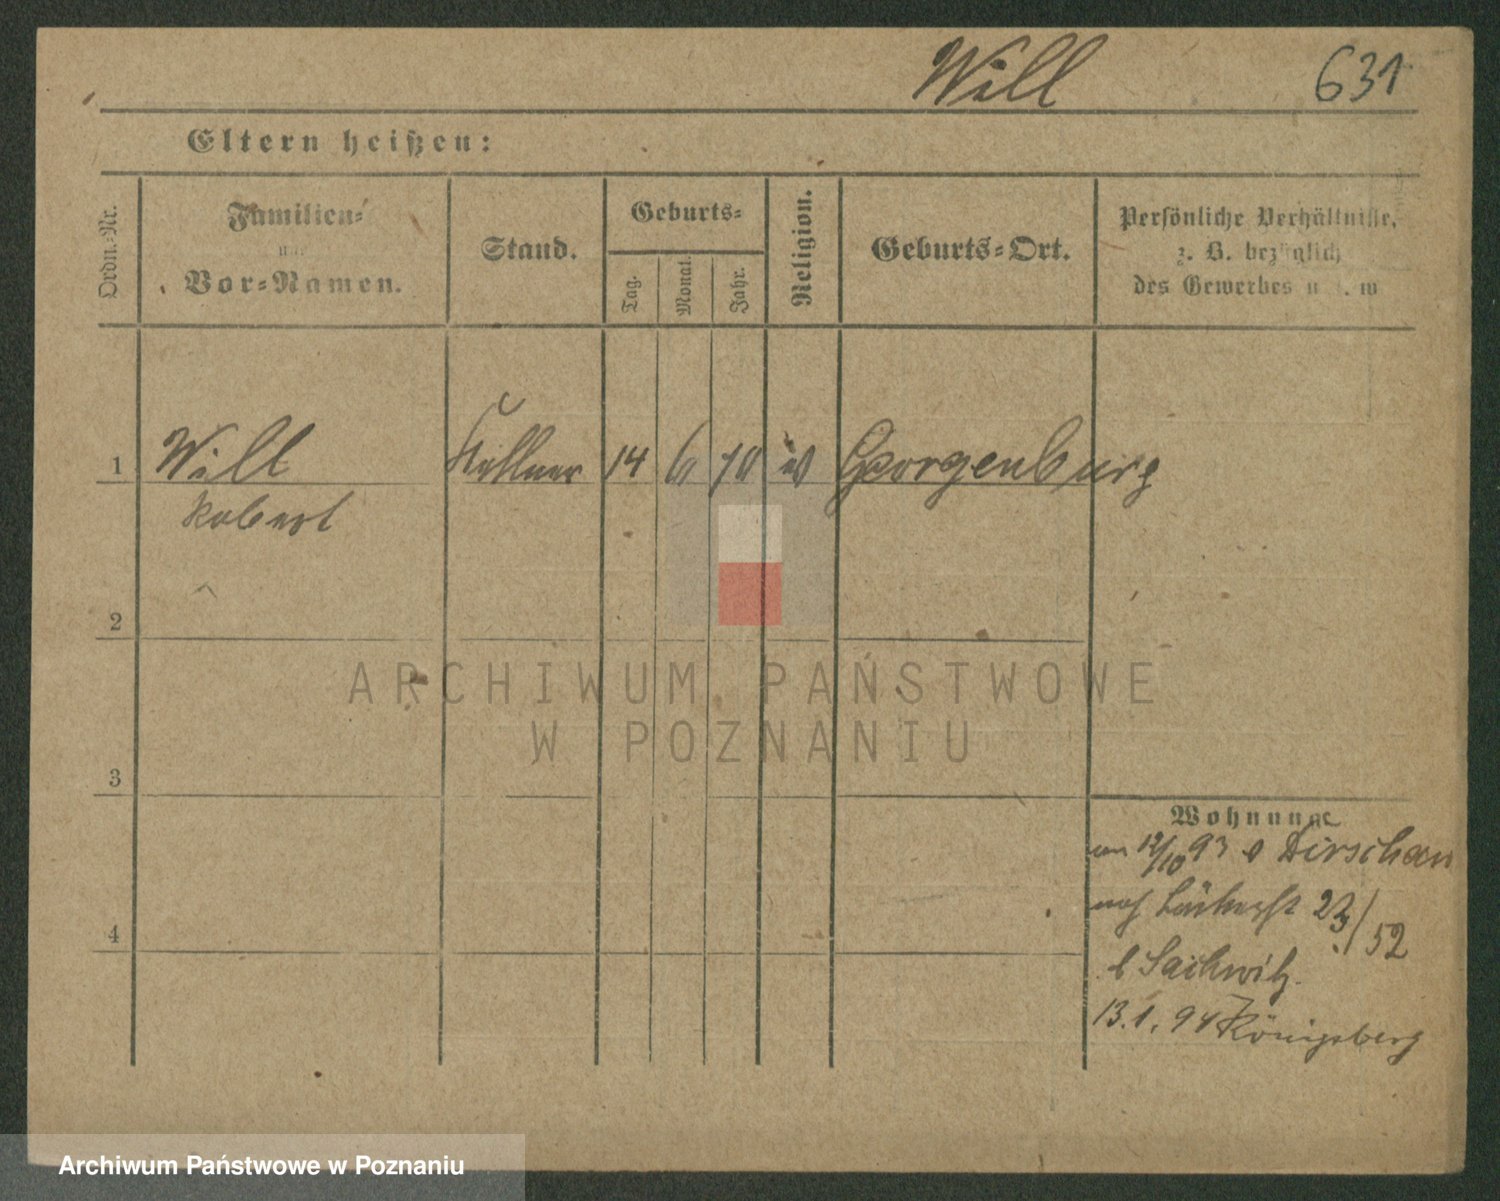 Will 631
Eltern heißen:
Ordn.-Nr.
Familien-
und
Vor-Namen.
Stand.
Geburts-
Tag.
Monat.
Jahr.
Religion.
Geburts-Ort.
Persönliche Verhältnisse,
z. B. bezüglich
des Gewerbes u. s. w
1 Will Kellner 14 6 70 ev Georgenburg
Robert
2
3
4
Wohnung
12/10 93 Dirschau
nach 23/52
b Sackwitz.
13.1.94 Königsberg
ARCHIWUM PAŃSTWOWE
W POZNANIU
Archiwum Państwowe w Poznaniu